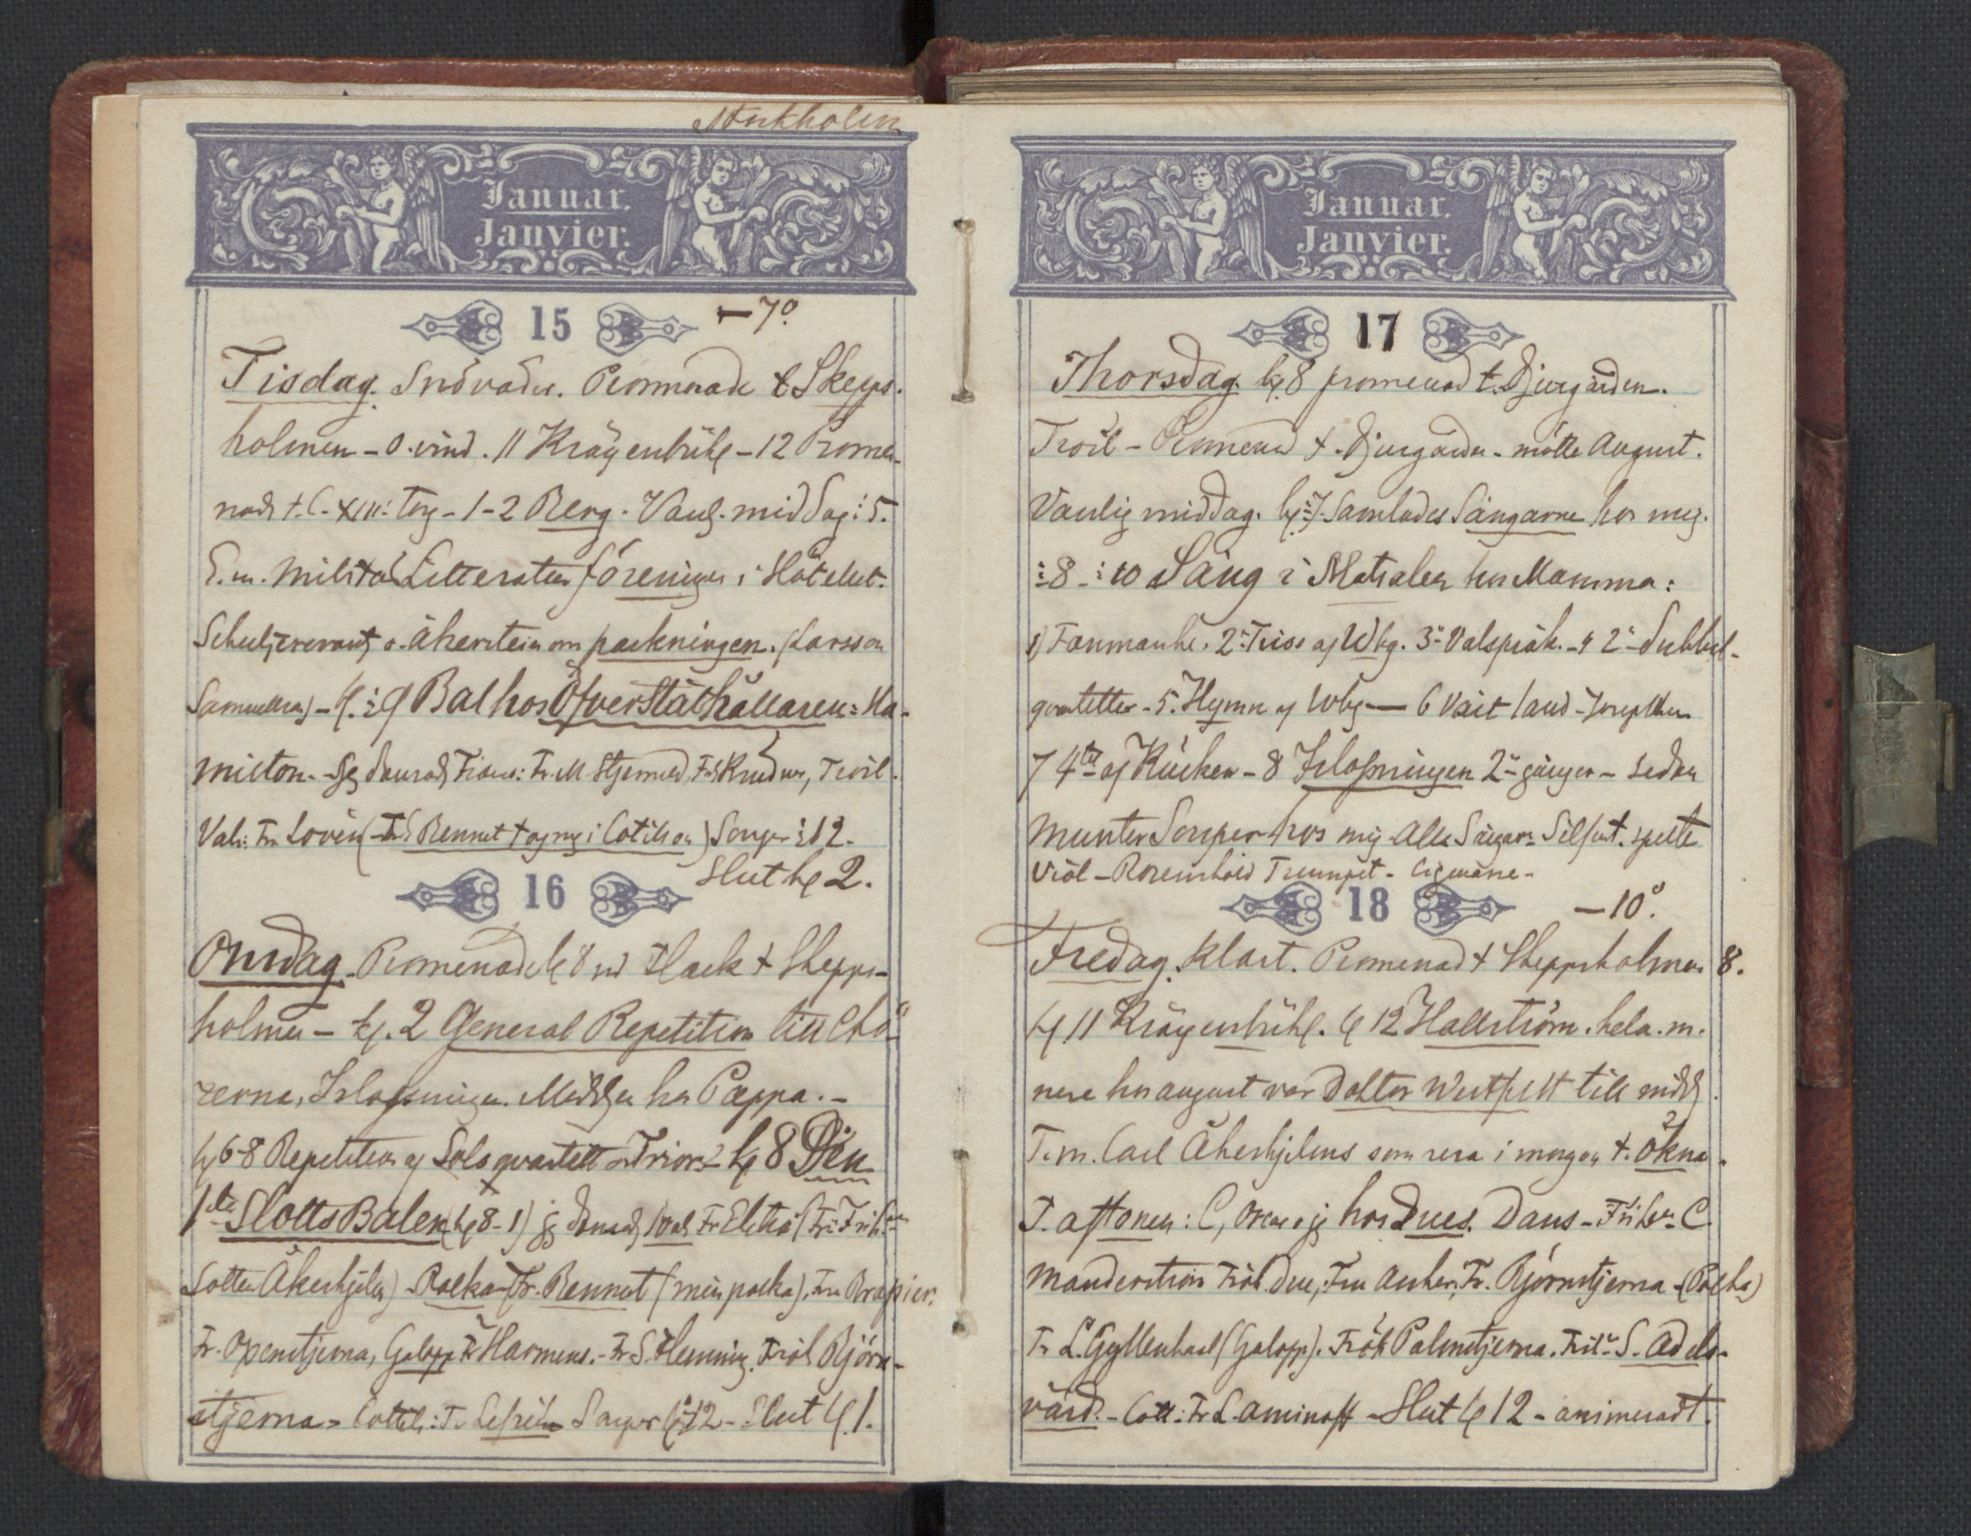 Stockholm
Januar.
Janvier.
15 —7°
Tisdag. Snöväder. Promenade t Skepps-
holmen – o. vind. 11 Krägenbühl – 12 Prome-
nad t. C. XIII: torg – 1–2 Berg. Vanl. middag : 5.
E.m. Militär Litteratur föreningen i Hôtellet.
o. Åkerstein om packningen. (Larsson
Samuelson) – kl. : 9 Bal hos Öfverståthållaren: Ha-
milton. – jg dansade Frans: Fr. M. Stjerneld, Troil.
Vals: Fr Lovén (– Bennet tog mig i Cotillon) Souper : 12.
Slut kl 2.
16
Onsdag. Promenad kl 8 Flack t Skepps-
holmen – kl. 2 General Repetition till Chö-
rerna, Islossningen. Middag hos Pappa. –
kl 6–8 Repetition af Soloqvartett o Trior – kl 8 Den
1sta Slotts Balen (kl 8–1) jg dansade Vals Fr
Lotten Åkerhjelm) – Polka – Fr. Bennet (min polka), Fru Brapier.
Fr. Oxenstjerna, Galopp Fr Harmens. – Fr S. Fleming. Fröl Björn-
stjerna – Cottil: Souper : 12 – Slut kl. 1.
Januar.
Janvier.
17
Thorsdag. kl. 8 promenad t. Djurgården.
Troil – Promenad t. Djurgården – mötte August.
Vanlig middag. kl : 7 Samlades Sångarne hos mig.
: 8 – : 10 Sång i Matsalen hos Mamma:
1) Fanmarche. 2 Trios af Wbg. 3 Valspråk. – 4 2 dubbel-
qvartetter – 5. Hymn af Wbg — 6 Vårt land – Josephson
7 4tt af Kücken – 8 Islossningen 2 gånger – sedan
munter Souper hos mig Alla Sångare Silfvst. spelte
Viol – Rosensvärd Trumpet –
18 —10°.
Fredag. Klart. Promenad t Skeppsholmen 8.
kl 11 Krägenbühl. kl 12 Hallström. hela. m.
nere hos august var Doktor Westfelt till midd.
T. m. Carl Åkerhjelms som resa i morgon t. Ökna.
T. aftonen : C, Oscar o jg hos Dues. Dans – C.
Manderström Fröl. Due, Fru Anker, Fr. Björnstjerna – (Polka)
Fr L. Gyllenhaal (Galopp). Frök Palmstjerna. S. Adels-
värd. – Cott: Fr L. Aminoff – Slut kl 12 – animeradt.